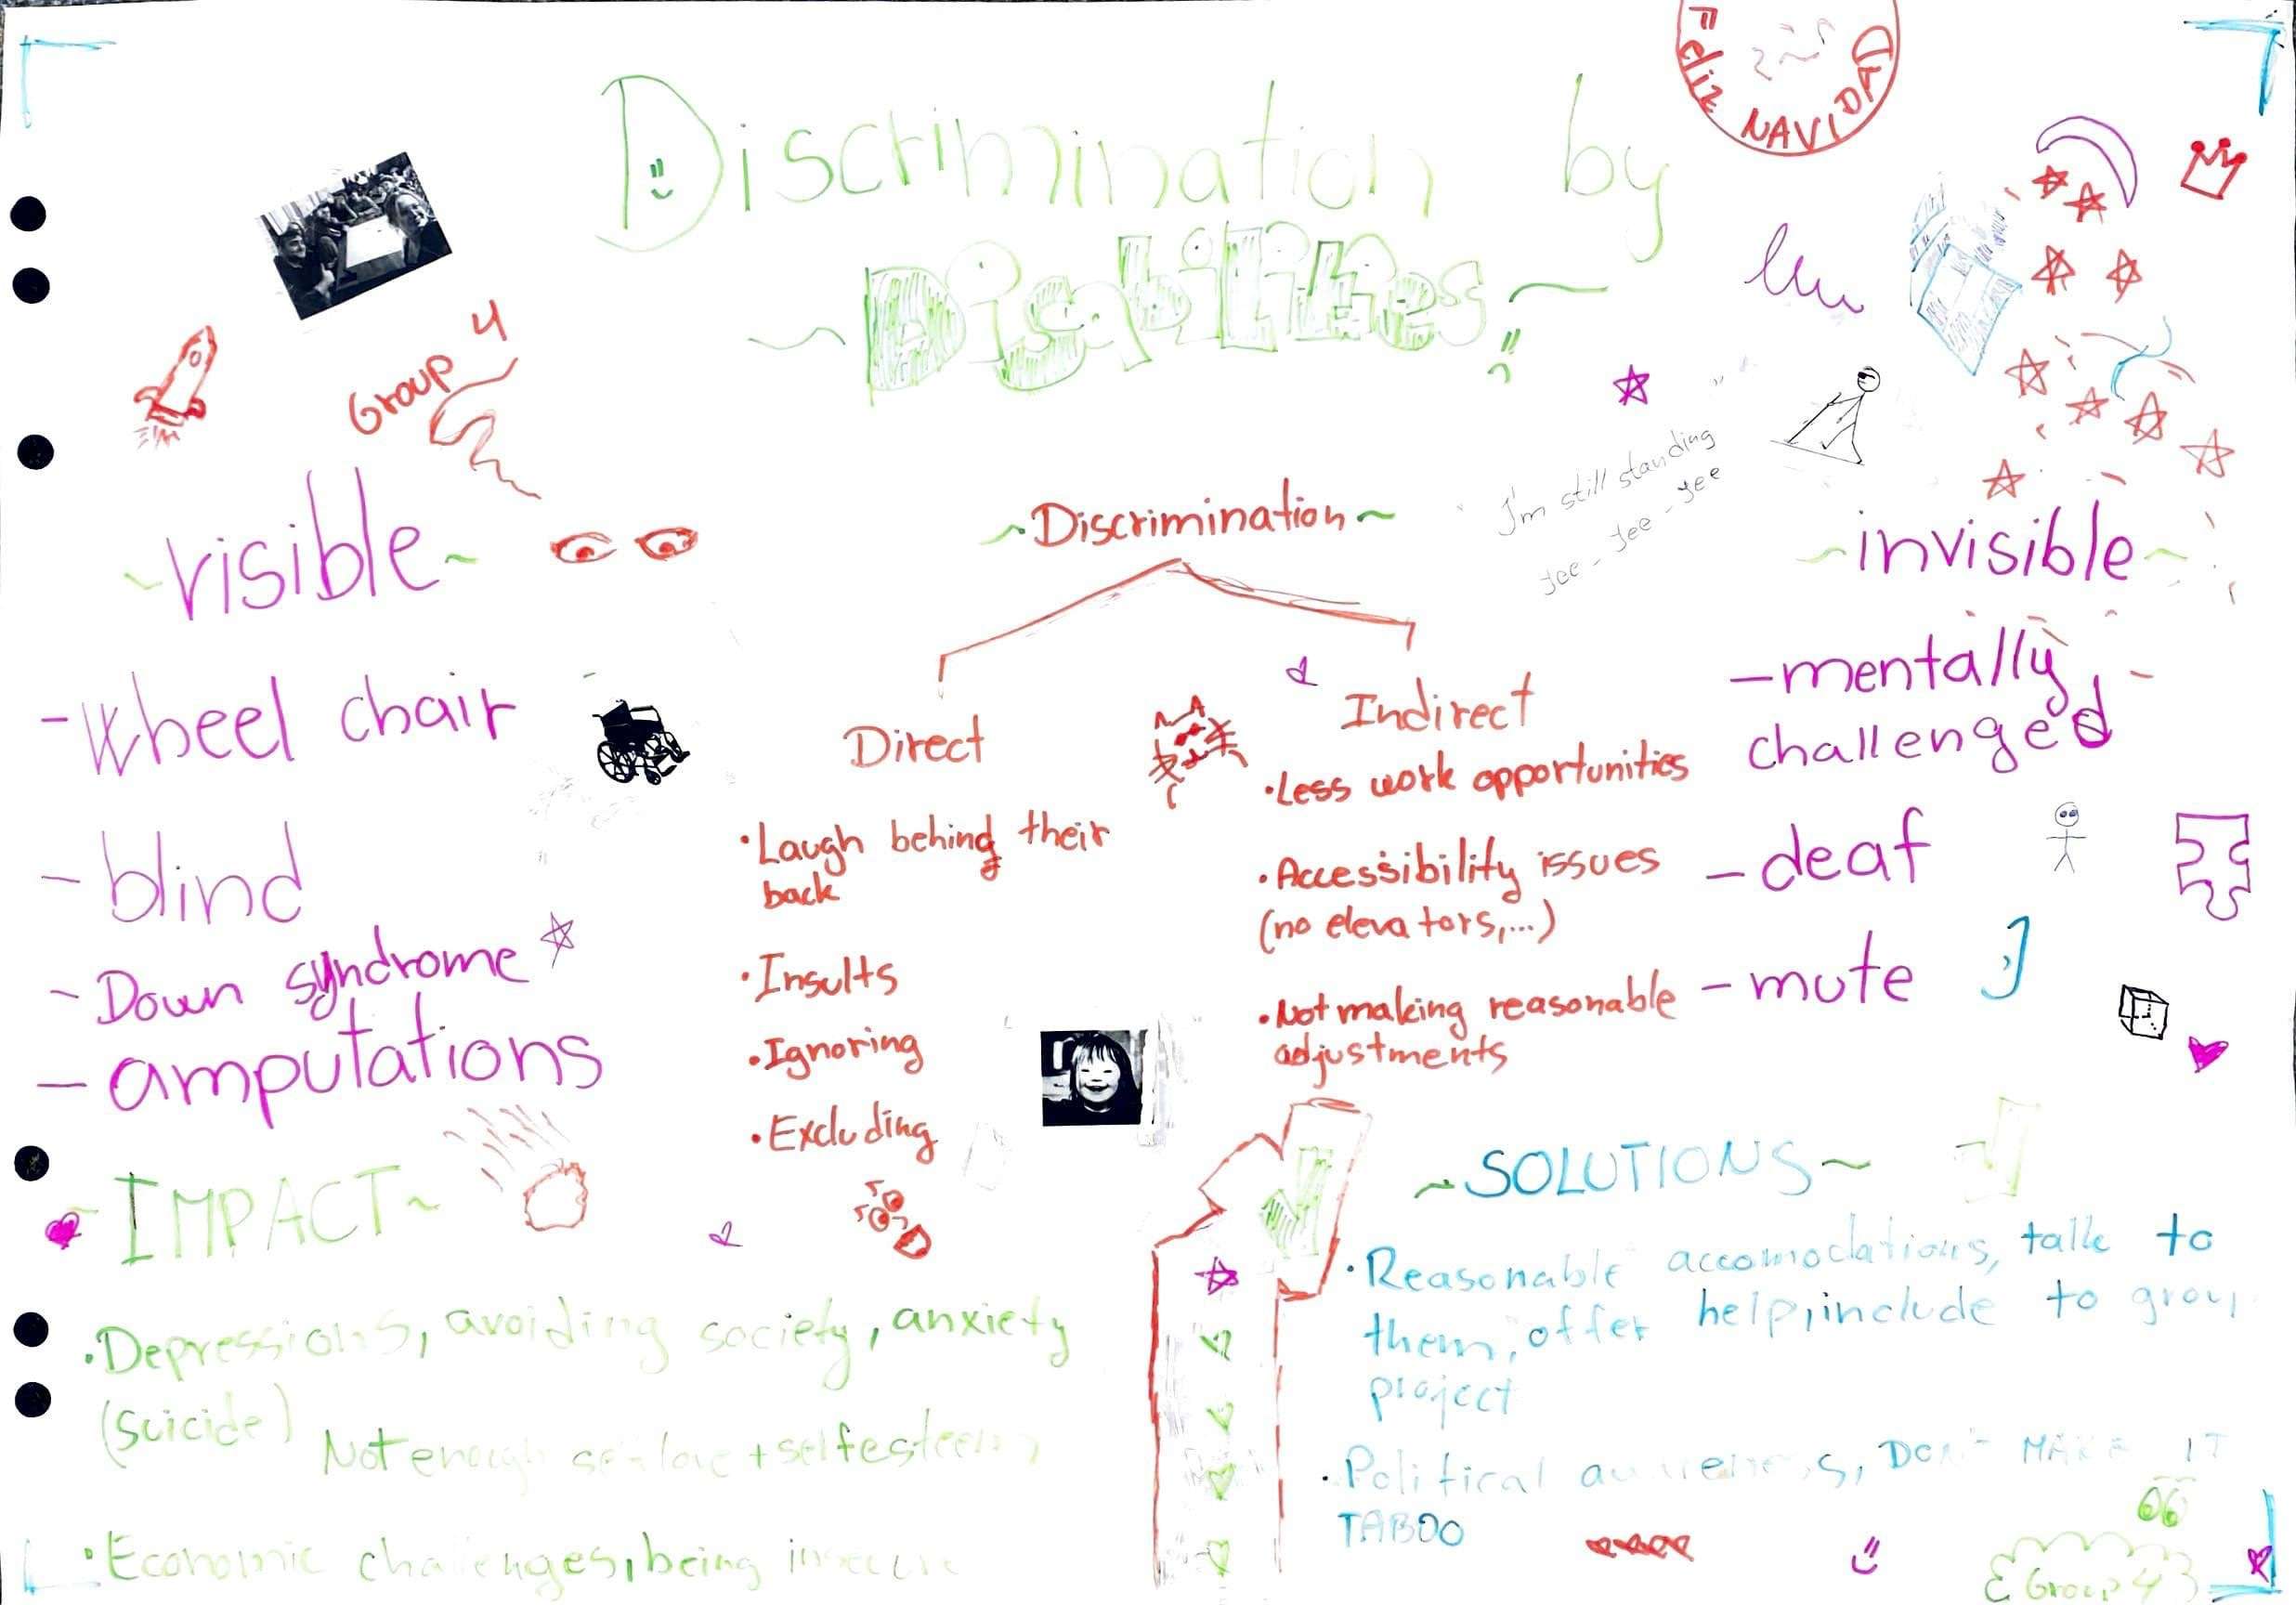 Feliz NAVIDAD
Discrimination by
~Disabilities~
Group 4
I'm still standing
yee - yee - yee
~visible~
- wheel chair
- blind
- Down syndrome
- amputations
~Discrimination~
Direct
•Laugh behind their
back
•Insults
•Ignoring
•Excluding
Indirect
•Less work opportunities
•Accessibility issues
(no elevators,...)
•Not making reasonable
adjustments
~invisible~
-mentally
challenged
-deaf
-mute
~IMPACT~
•Depressions, avoiding society, anxiety
(suicide)
Not enough self love + selfesteem
•Economic challenges, being insecure
~SOLUTIONS~
•Reasonable accomodations, talk to
them, offer help, include to group
project
•Political awareness, DON'T MAKE IT
TABOO
Group 4